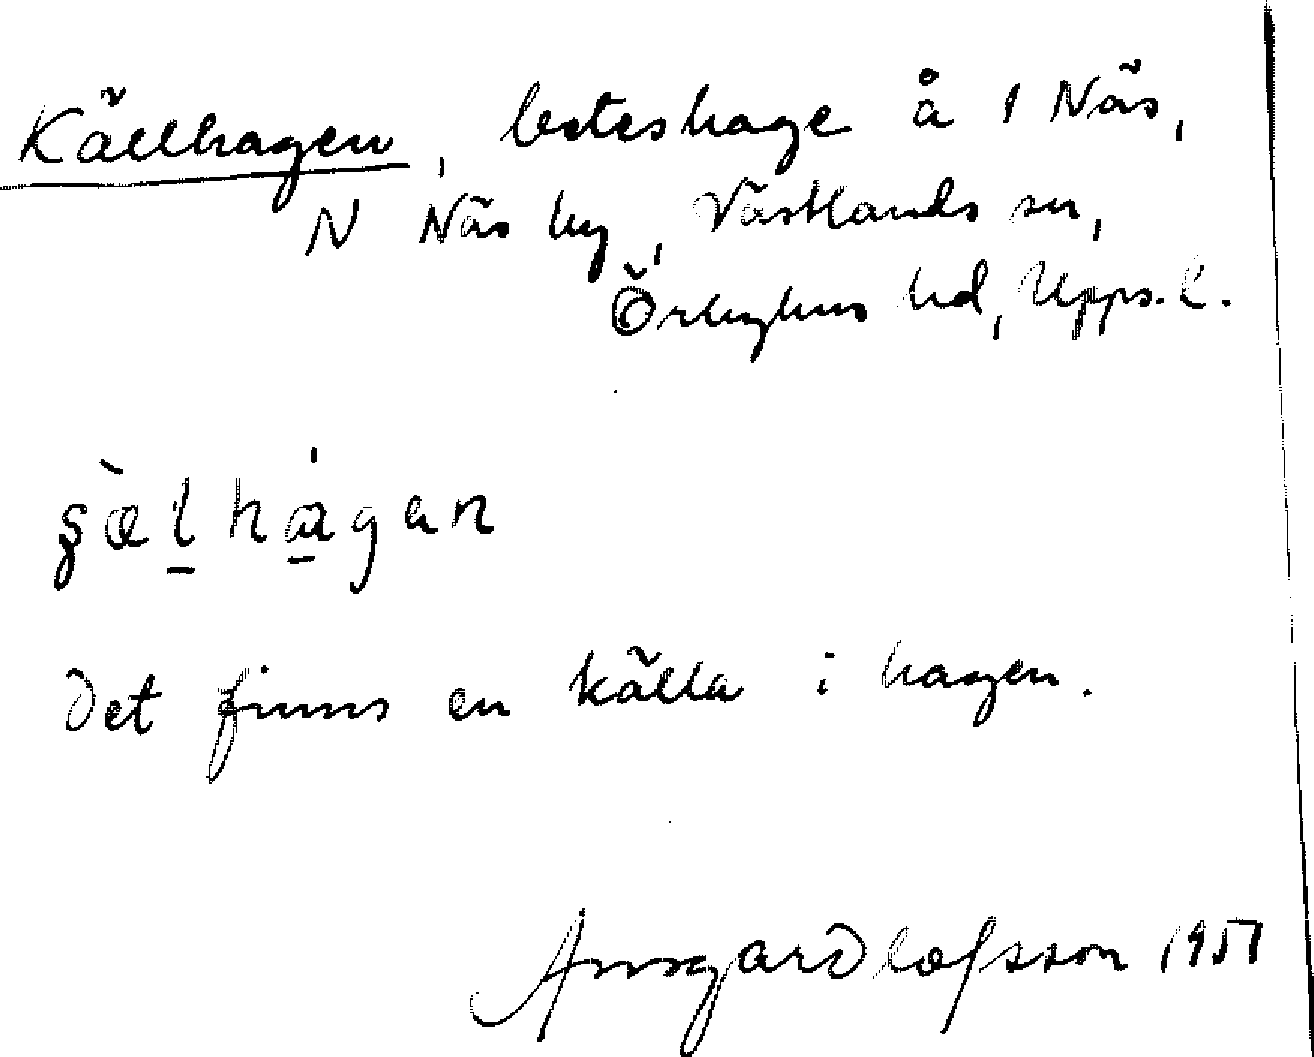 Källhagen, beteshage å 1 Näs,
N Näs by, Västlands sn,
Örbyhus hd, Upps. l.
det finns en källa i hagen.
Ansgar Olofsson 1957